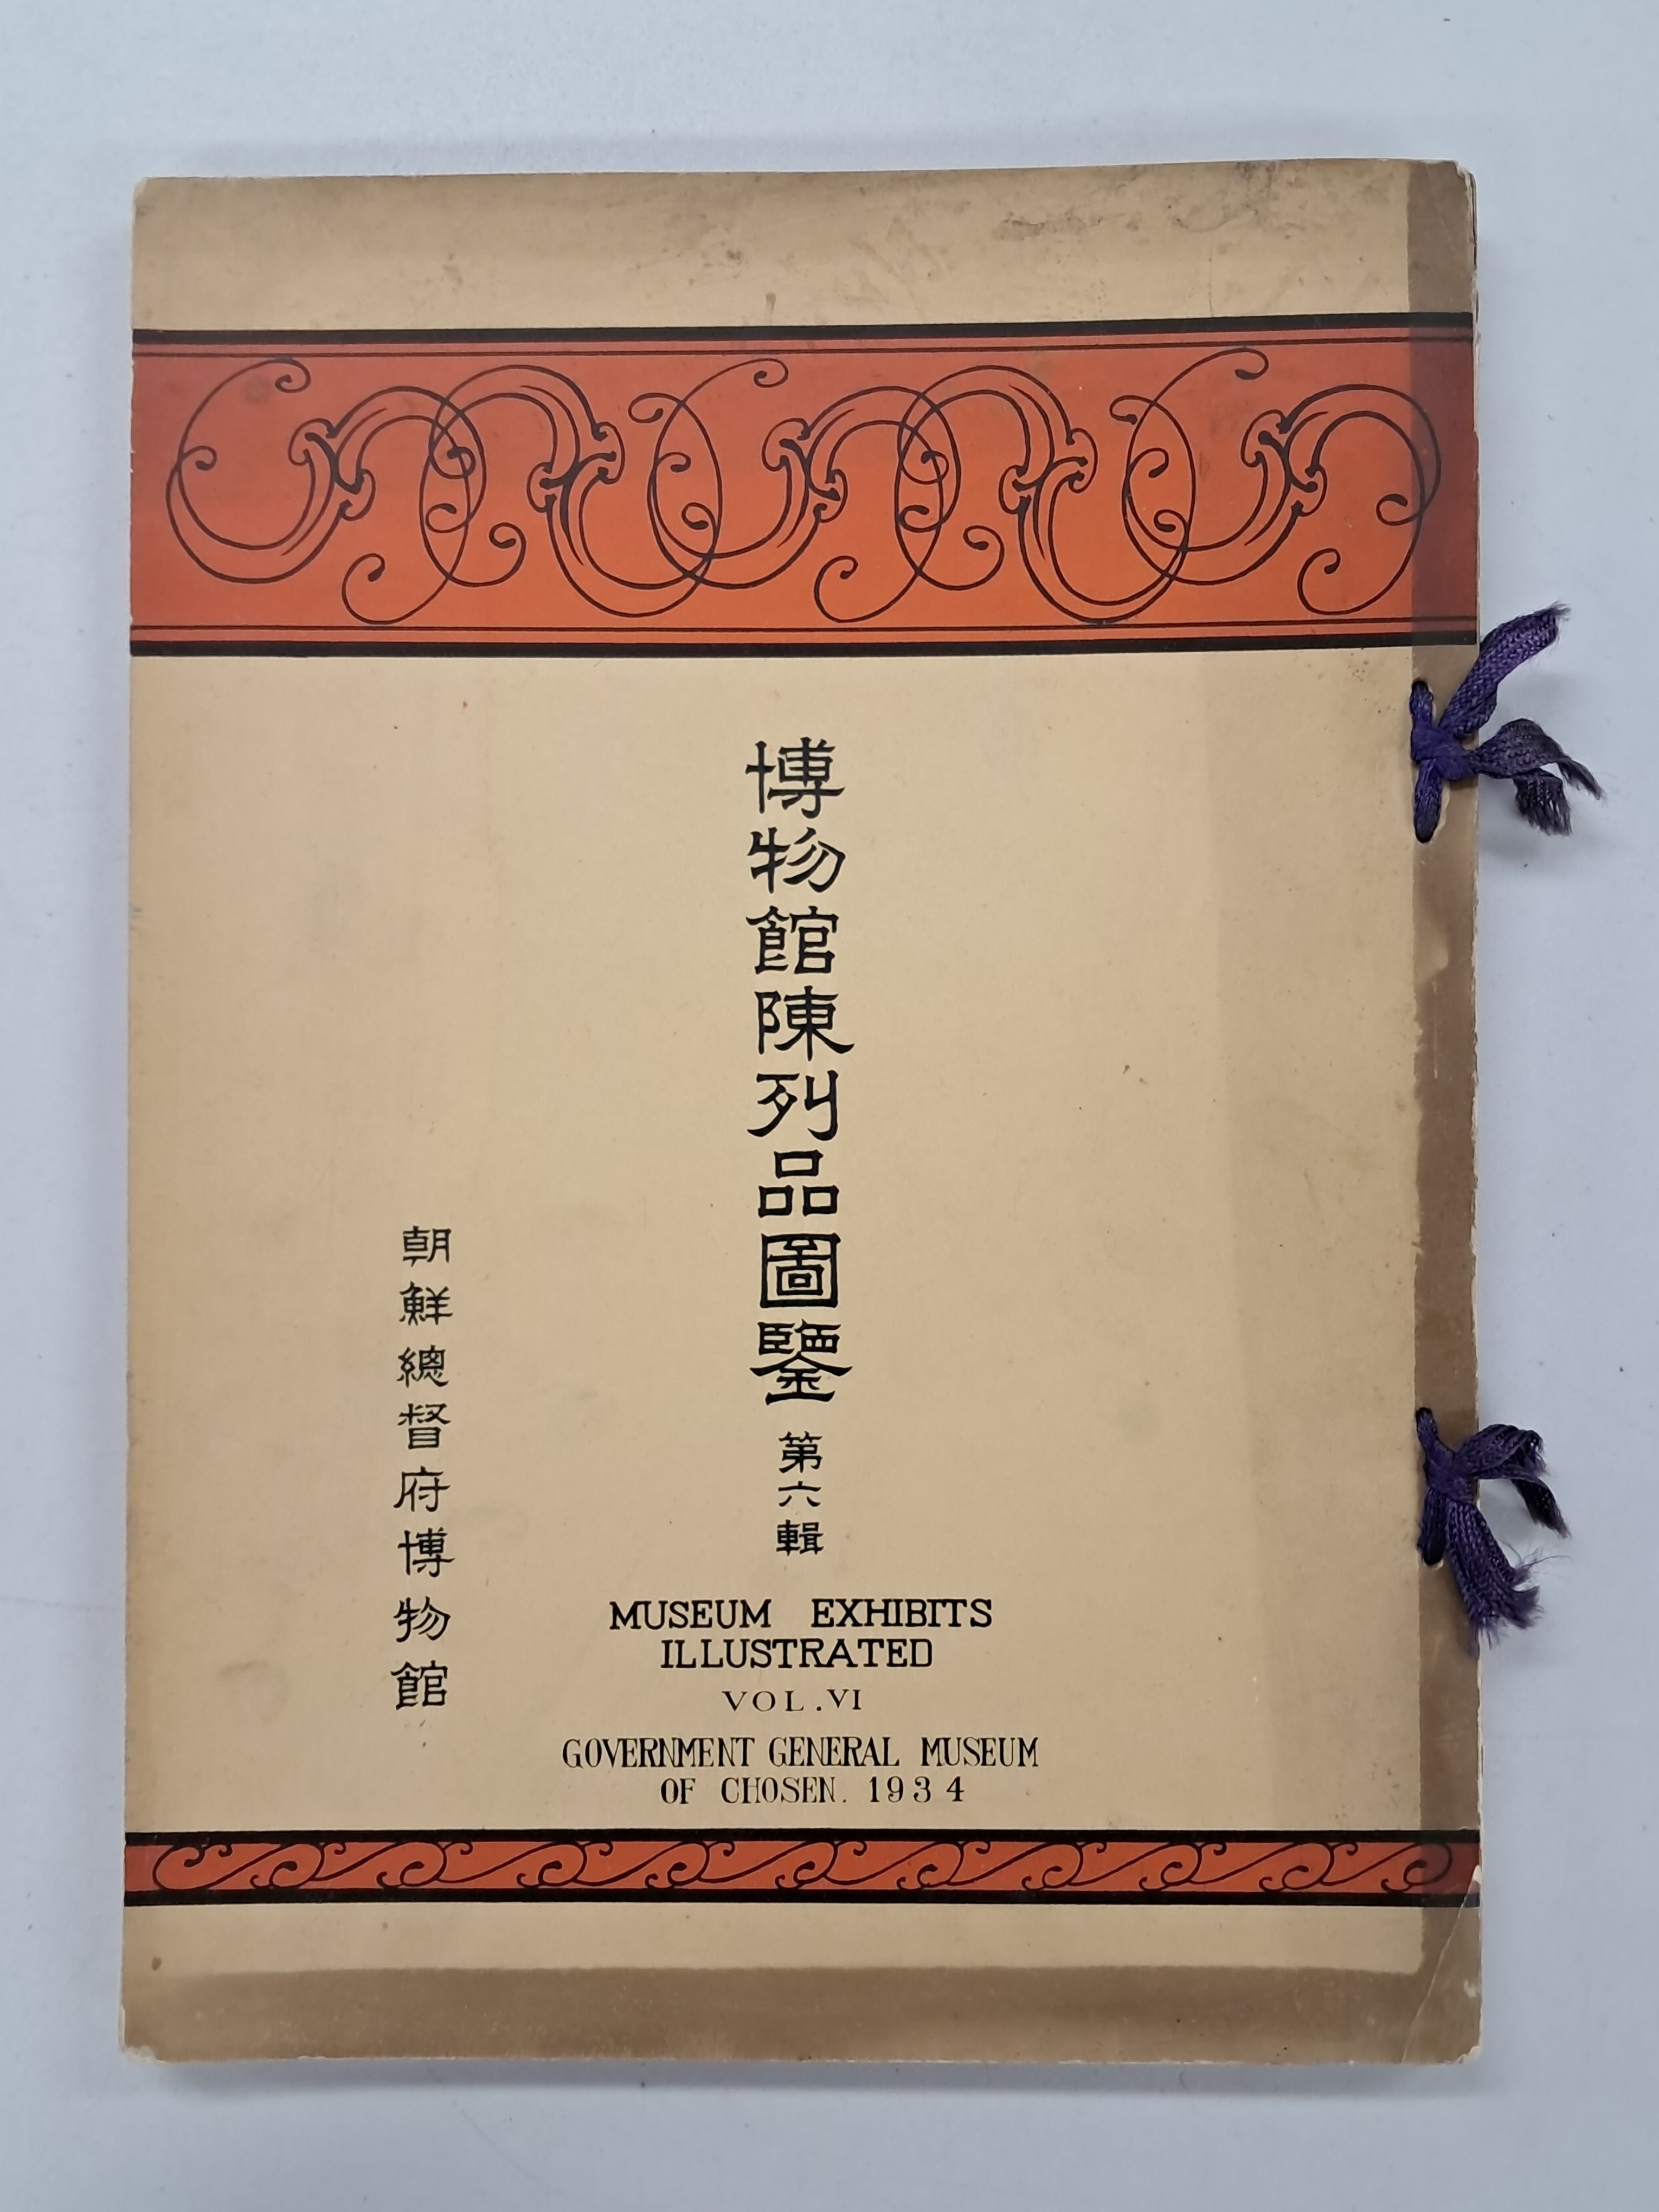 博物館陳列品圖鑒 第六輯
朝鮮總督府博物館
MUSEUM EXHIBITS
ILLUSTRATED
VOL.VI
GOVERNMENT GENERAL MUSEUM
OF CHOSEN. 1934